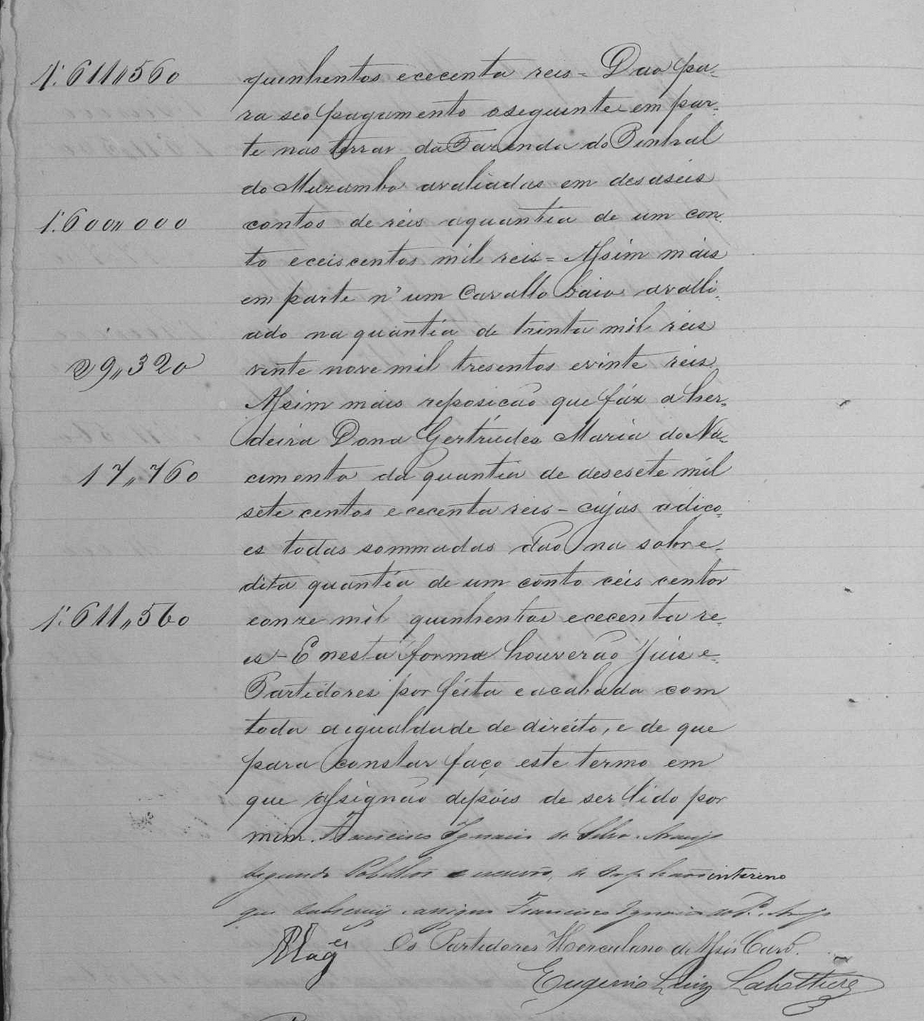 1:611,,560 quinhentos e cecenta reis - Dao pa-
ra seo pagamento o seguinte em par-
te nas terras da Fazenda do Pinhal
do Muzambo avaliadas em desaseis
1:600,,000 contos de réis a quantia de um con-
to e ceiscentos mil reis = Assim máis
em parte n'um cavallo baio avalli-
ado na quantia de trinta mil réis
29,,320 vinte nove mil tresentos e vinte reis.
Assim mais reposicão que fáz a her-
deira Dona Gertrudes Maria do Na-
17,,760 cimento da quantia de desesete mil
sete centos e cecenta reis - cujas adico-
es todas sommadas dão na sobre-
dita quantia de um conto céis centos
1:611,,560 e onze mil quinhentos e cecenta re-
is - E nesta forma houverão Juis e
Partidores por féita e acabada com
toda a igualdade de diréito, e de que
para constar faço este termo em
que assignão depóis de ser lido por
mim. Francisco Ignacio da Silva Araujo
segundo Tabellião e escrivão de Orphãos interino
que subscrevi e assignei Francisco Ignacio
Os Partidores Herculano de Assis Carv.
Eugenio Luiz